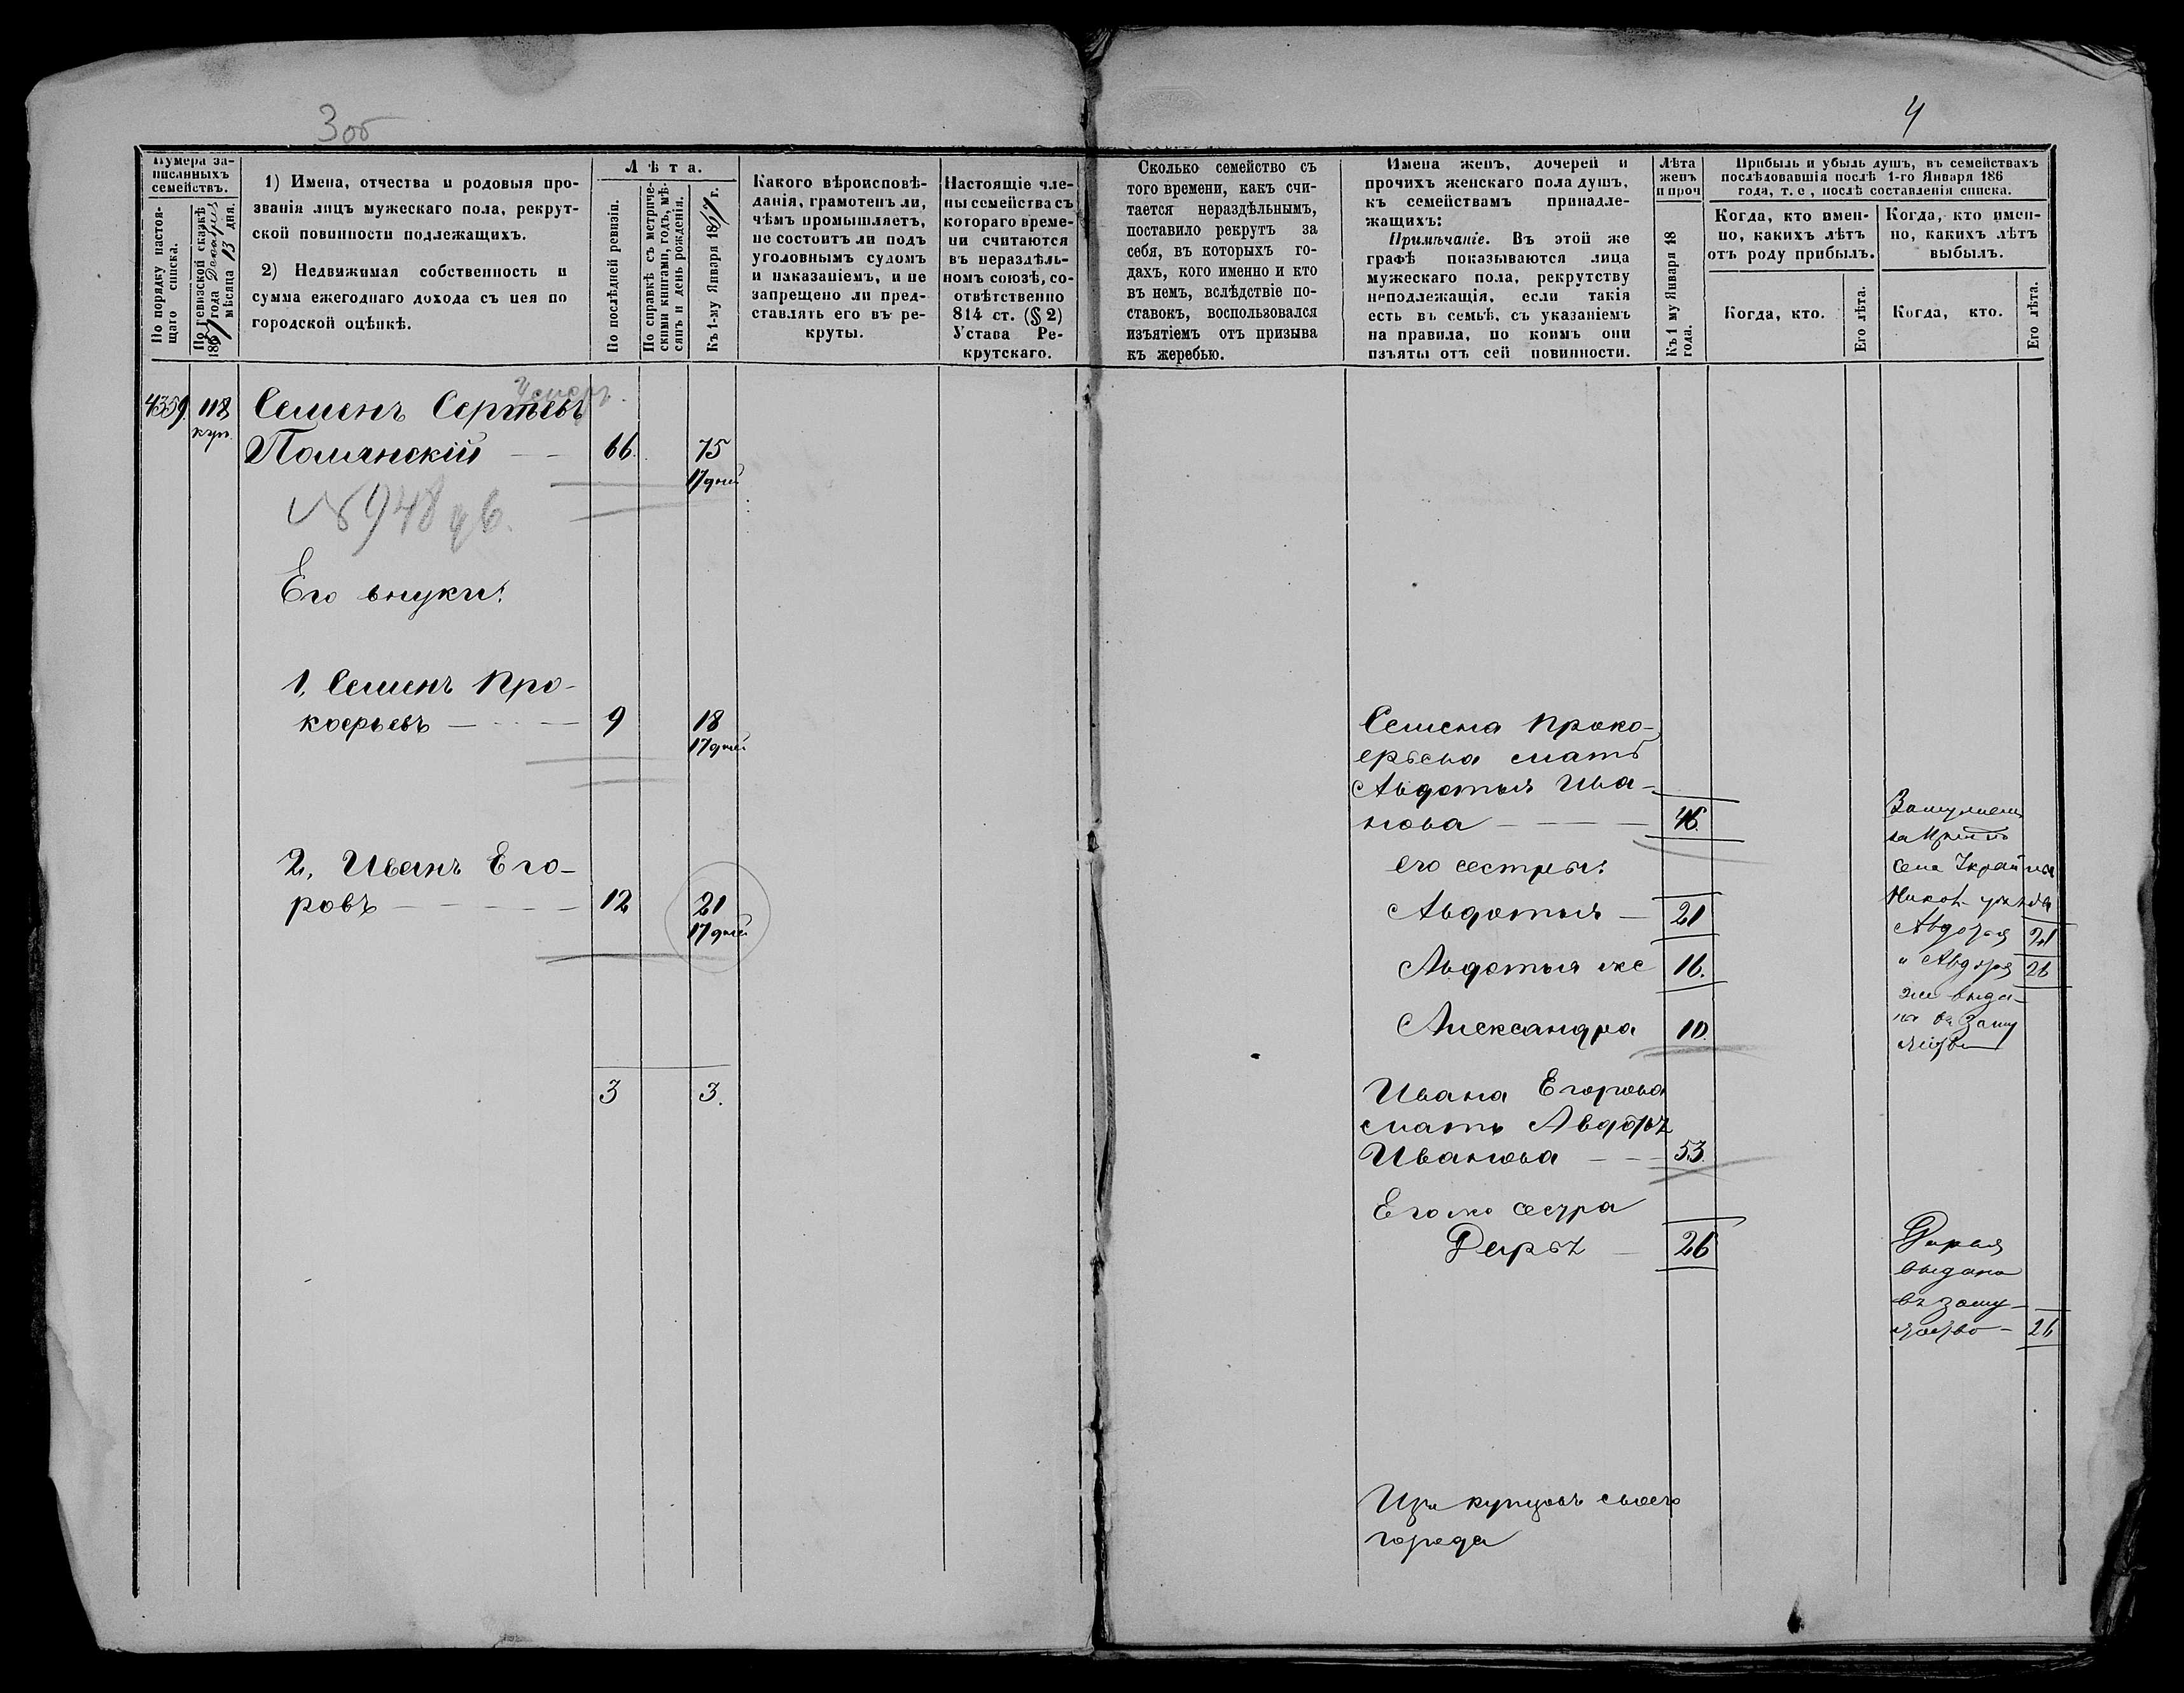 3 об
4
Нумера записанныхъ семействъ.
По порядку настоящаго списка.
По ревизской сказкѣ 1867 года
мѣсяца 13 дня.
1) Имена, отчества и родовыя про-
званія лицъ мужескаго пола, рекрут-
ской повинности подлежащихъ.
2) Недвижимая собственность и
сумма ежегоднаго дохода съ нея по
городской оцѣнкѣ.
Лѣта.
По послѣдней ревизіи.
По справкѣ съ метриче-
скими книгами, годъ, мѣ-
сяцъ и день рожденія.
Къ 1-му Января 1867 г.
Какого вѣроисповѣ-
данія, грамотенъ ли,
чѣмъ промышляетъ,
не состоитъ ли подъ
уголовнымъ судомъ
и наказаніемъ, и не
запрещено ли пред-
ставлять его въ ре-
круты.
Настоящіе чле-
ны семейства съ
котораго време-
ни считаются
въ нераздѣль-
номъ союзѣ, со-
отвѣтственно
814 ст. (§ 2)
Устава Ре-
крутскаго.
Сколько семейство съ
того времени, какъ счи-
тается нераздѣльнымъ,
поставило рекрутъ за
себя, въ которыхъ го-
дахъ, кого именно и кто
въ немъ, вслѣдствіе по-
ставокъ, воспользовался
изъятіемъ отъ призыва
къ жеребью.
Имена женъ, дочерей и
прочихъ женскаго пола душъ,
къ семействамъ принадле-
жащихъ:
Примѣчаніе. Въ этой же
графѣ показываются лица
мужескаго пола, рекрутству
неподлежащія, если такія
есть въ семьѣ, съ указаніемъ
на правила, по коимъ они
изъяты отъ сей повинности.
Лѣта
женъ
и проч
Къ 1 му Января 18
года.
Прибыль и убыль душъ, въ семействахъ
послѣдовавшія послѣ 1-го Января 186
года, т. е, послѣ составленія списка.
Когда, кто имен-
но, какихъ лѣтъ
отъ роду прибылъ.
Когда, кто имен-
но, какихъ лѣтъ
выбылъ.
Когда, кто.
Его лѣта.
Когда, кто.
Его лѣта.
4359. 118 Семенъ Сергѣевъ
куп. Помянскій 66. 75
17 дней
№ 948
Его внуки:
1, Семенъ Про-
кофьевъ 9 18
17 дней
2, Иванъ Его-
ровъ 12 21
17 дней
3 3.
Семена Проко-
фьева мать
Авдотья Ива-
нова 46.
его сестры:
Авдотья 21
Авдотья же 16.
Александра 10.
Ивана Егорова
мать
Иванова 53.
Его же сестра
Дарья 26
Изъ купцовъ своего
города
села
Авдотья 21
и 26
же выда-
на въ заму
Дарья
выдана
въ заму-
жество 26